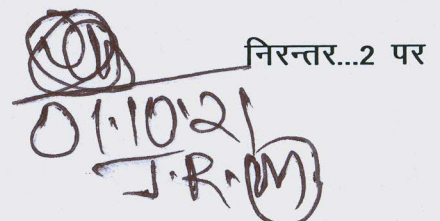 निरन्तर...2 पर
01.10.21
J.R.(M)